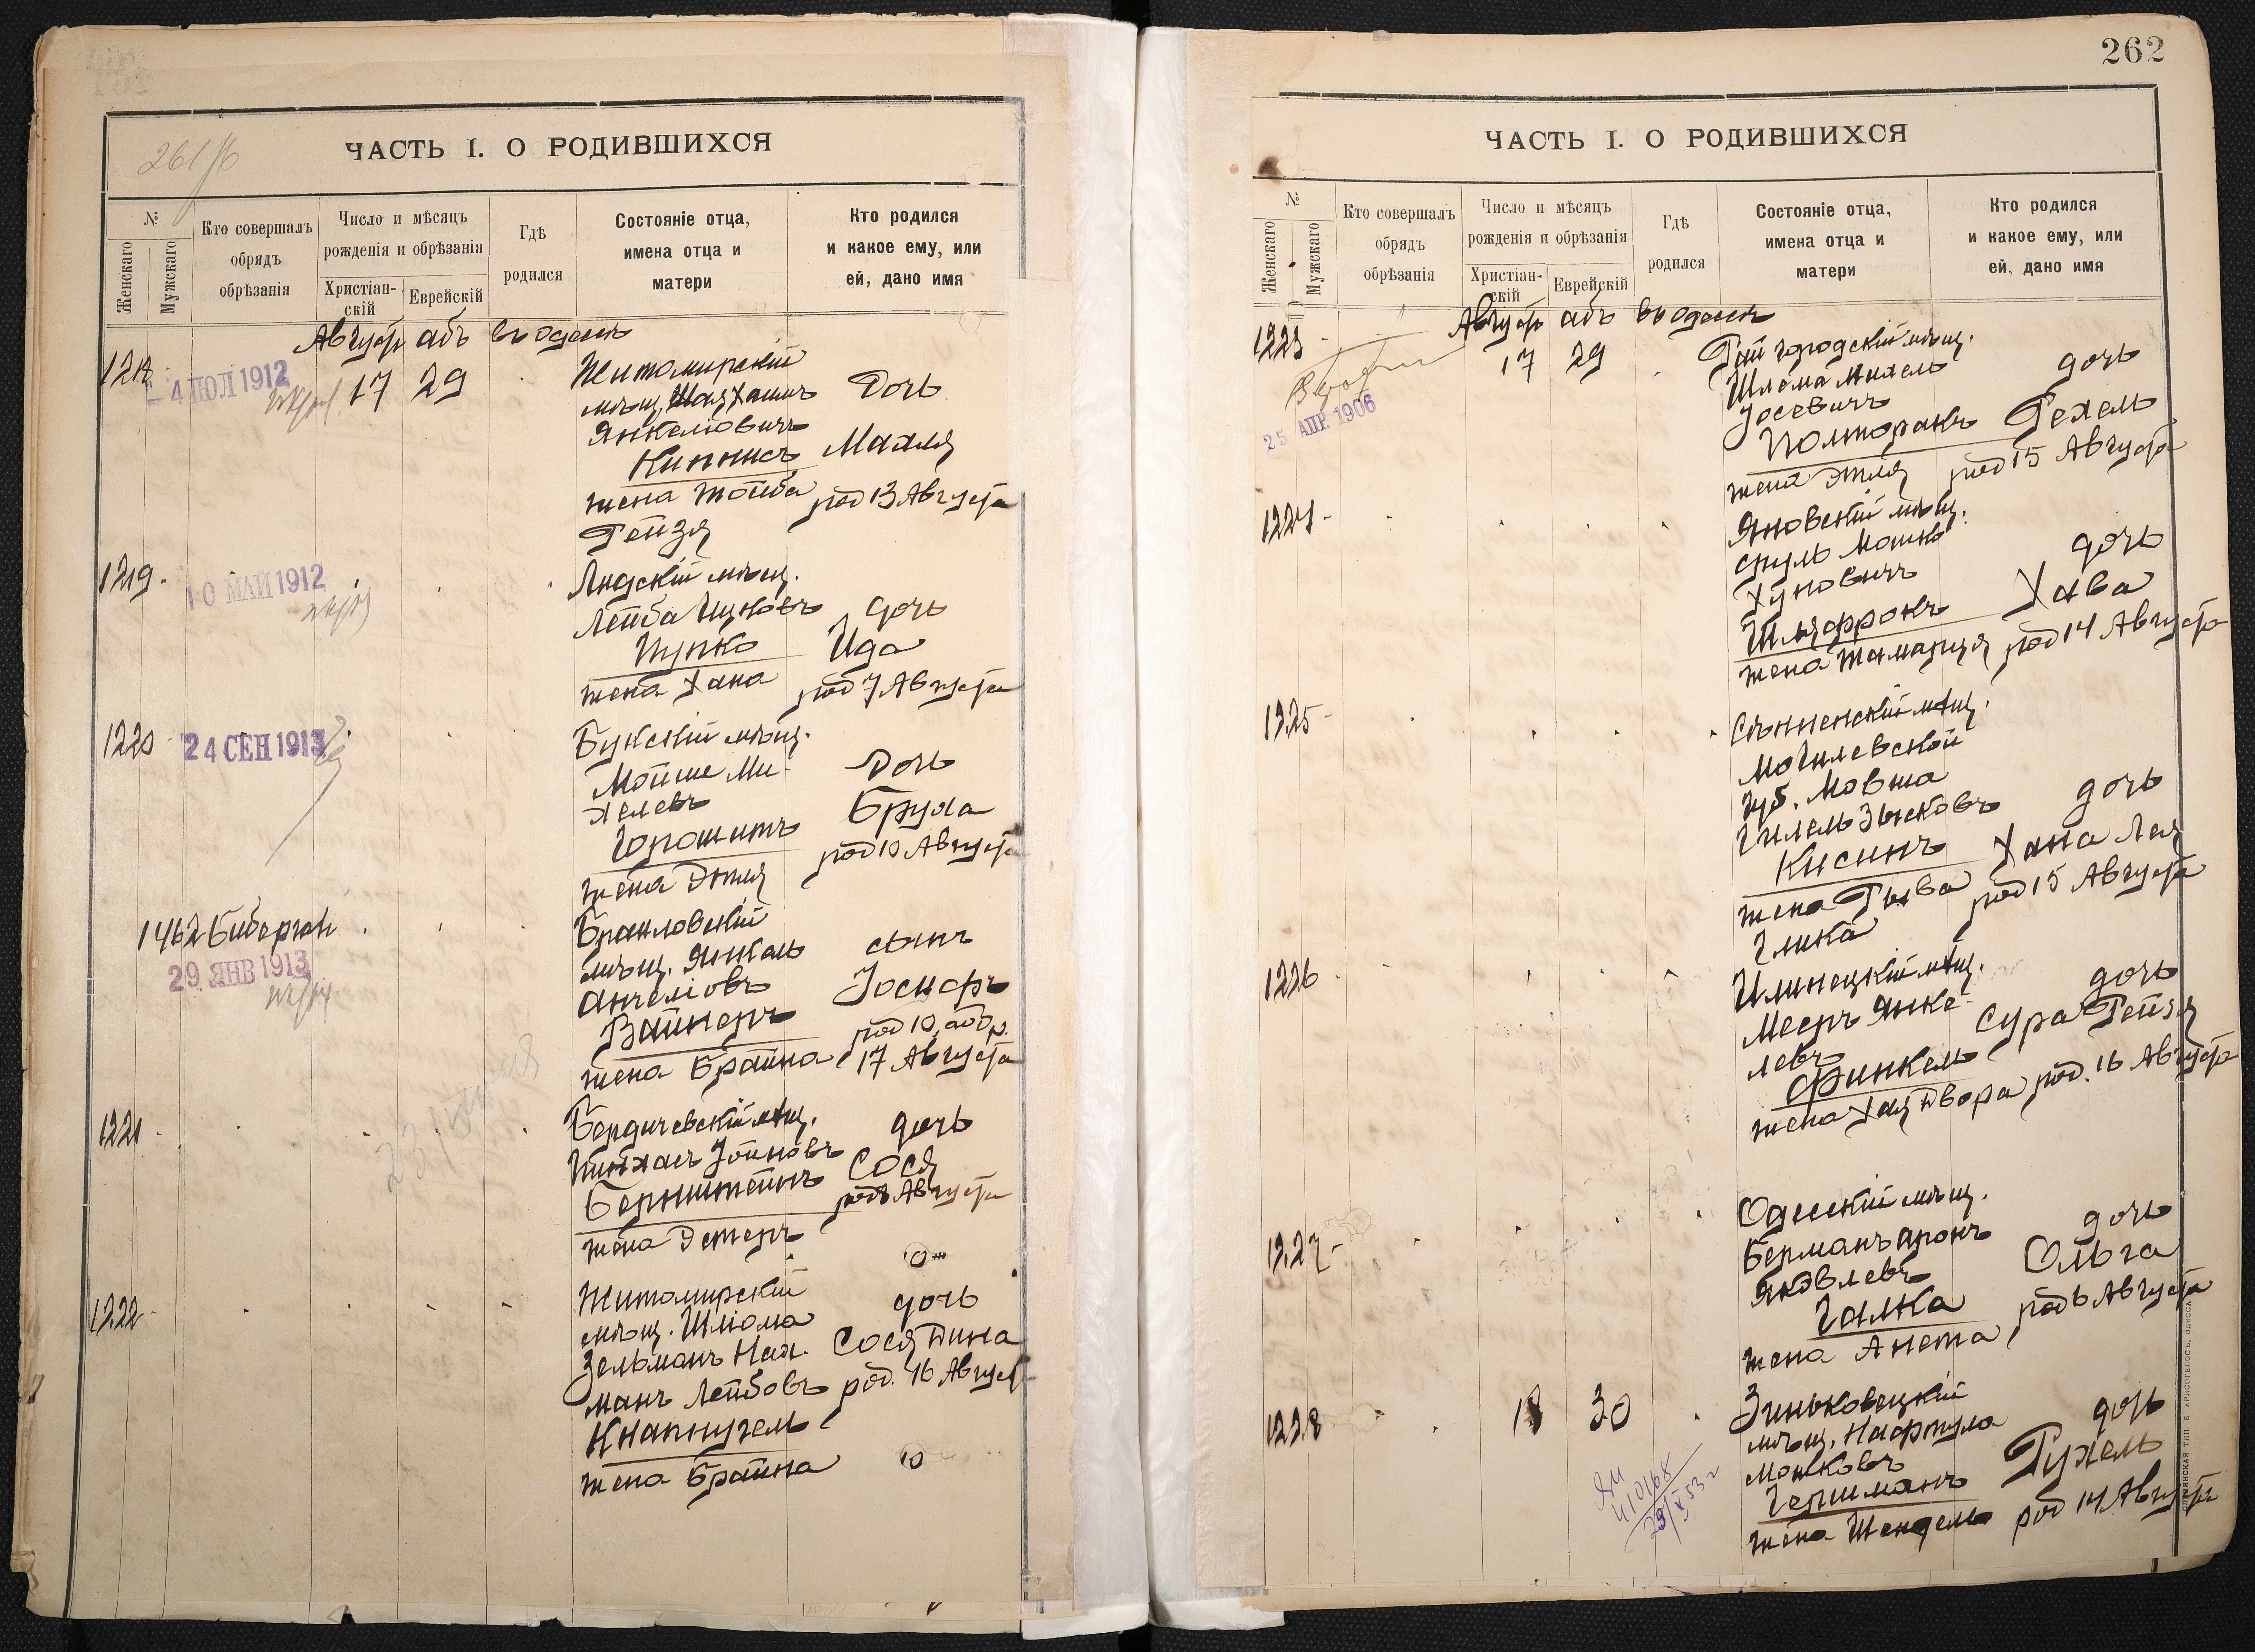 261/об
ЧАСТЬ I. О РОДИВШИХСЯ
№
Женскаго
Мужскаго
Кто совершалъ обрядъ обрѣзанія
Число и мѣсяцъ рожденія и обрѣзанія
Христіан-скій
Еврейскій
Гдѣ родился
Состояніе отца, имена отца и матери
Кто родился и какое ему, или ей, дано имя
Август абъ въ Одессѣ
1218
- 4 ІЮЛ 1912
17 29
Житомирскій
мѣщ. Шая Хаимъ
Янкеліовичъ
Кипнисъ
жена Тойба
Рейзя
Дочь
Махля
род 13 Августа
1219.
10 МАЙ 1912
Лидскій мѣщ.
Лейба Ицковъ
Пупко
жена Хана
дочь
Ида
род 7 Августа
1220
24 СЕН 1913
Букскій мѣщ.
Мойше Ми-
хелевъ
Горошитъ
жена Этля
Дочь
Бруха
род 10 Августа
1462
29 ЯНВ 1913
Браиловскій
мѣщ. Янкель
Анчеліовъ
Вайнеръ
жена Брайна
сынъ
Іосифъ
род 10, обр.
17 Августа
1221
Бердичевскій мѣщ.
Пинхасъ Іойновъ
Бернштейнъ
жена Эстеръ
дочь
Сося
род 8 Августа
1222
Житомирскій
мѣщ. Шліома
Зельманъ Нах-
манъ Лейбовъ
Кнапнугель
жена Брайна
дочь
Сося Дина
род. 16 Август
262
ЧАСТЬ I. О РОДИВШИХСЯ
№
Женскаго
Мужскаго
Кто совершалъ обрядъ обрѣзанія
Число и мѣсяцъ рожденія и обрѣзанія
Христіан-скій
Еврейскій
Гдѣ родился
Состояніе отца, имена отца и матери
Кто родился и какое ему, или ей, дано имя
Август абъ въ Одессѣ
1223
25 АПР. 1906
17 29
Райгородскій мѣщ.
Шлема Михель
Іосевичъ
Полторакъ
жена Этля
дочь
Рехель
род 15 Августа
1224
Яновскій мѣщ.
Сруль Мошко
Хуновичъ
Шляфрокъ
жена Тамарця
дочь
Хава
род 14 Августа
1225
Сѣнненскій мѣщ.
Могилевской
губ. Мовша
Гилель Зысковъ
Кисинъ
жена Рыва
Глика
дочь
Хана Лея
род 15 Августа
1226
Илинецкій мѣщ.
Мееръ Янке-
левъ
Финкель
жена Хая Двора
дочь
Сура Рейзя
род. 16 Августа
1227
Одесскій мѣщ.
Берманъ Аронъ
Яковлевъ
Галка
жена Анета
дочь
Ольга
род 6 Августа
1228
18 30
Зиньковецкій
мѣщ. Нафтула
Мошковъ
Гершманъ
жена Шендель
дочь
Рухель
род 14 Августа